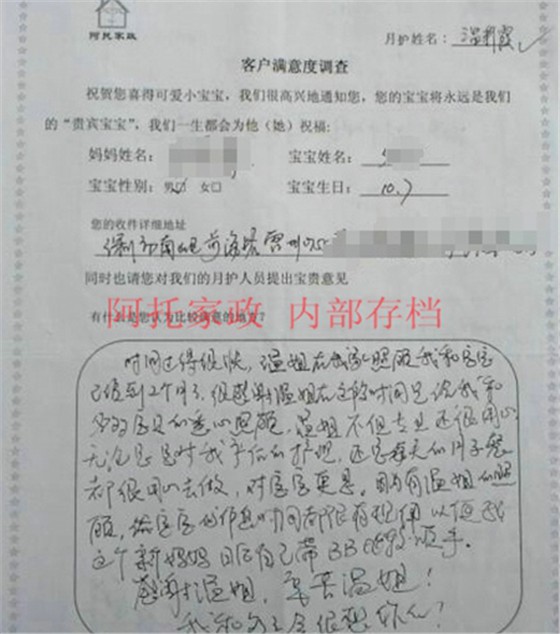 阿托家政
月护姓名：温
客户满意度调查
祝贺您喜得可爱小宝宝，我们很高兴地通知您，您的宝宝将永远是我们
的“贵宾宝宝”，我们一生都会为他（她）祝福：
妈妈姓名：
宝宝姓名：
宝宝性别：男☑ 女□
宝宝生日：10.7
您的收件详细地址
同时也请您对我们的月护人员提出宝贵意见
阿托家政 内部存档
有什么是您认为比较满意的地方？
时间过得很快，温姐在我家照顾我和宝宝
已经到2个月了，很感谢温姐在这段时间
的悉心照顾，温姐不但专业还很用心
无论是对我产后的护理，还是每天的月子餐
都很用心去做，对宝宝更是。因为有温姐的照
顾，宝宝的作息时间都很有规律 以便我
这个新妈妈日后自己带BB 顺手。
感谢温姐，辛苦温姐！
我和宝宝会很想你